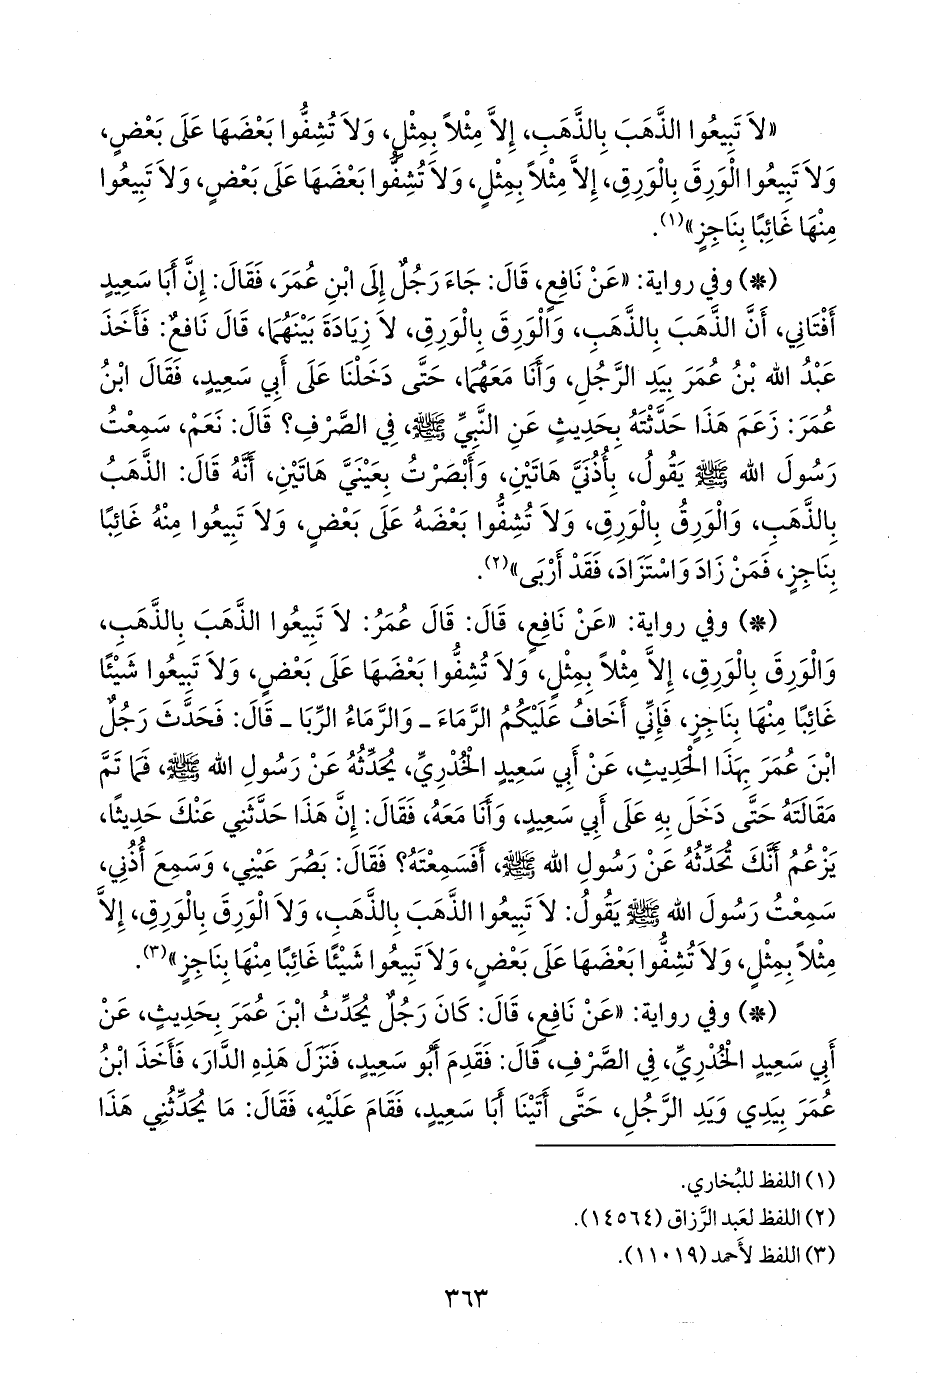 «لاَ تَبِيعُوا الذَّهَبَ بِالذَّهَبِ، إِلاَّ مِثْلاً بِمِثْلٍ، وَلاَ تُشِفُّوا بَعْضَهَا عَلَى بَعْضٍ،
وَلاَ تَبِيعُوا الْوَرِقَ بِالْوَرِقِ، إِلاَّ مِثْلاً بِمِثْلٍ، وَلاَ تُشِفُّوا بَعْضَهَا عَلَى بَعْضٍ، وَلاَ تَبِيعُوا
مِنْهَا غَائِبًا بِنَاجِزٍ»(١).
(*) وفي رواية: «عَنْ نَافِعٍ، قَالَ: جَاءَ رَجُلٌ إِلَى ابْنِ عُمَرَ، فَقَالَ: إِنَّ أَبَا سَعِيدٍ
أَفْتَانِي، أَنَّ الذَّهَبَ بِالذَّهَبِ، وَالْوَرِقَ بِالْوَرِقِ، لاَ زِيَادَةَ بَيْنَهُمَا، قَالَ نَافِعٌ: فَأَخَذَ
عَبْدُ الله بْنُ عُمَرَ بِيَدِ الرَّجُلِ، وَأَنَا مَعَهُمَا، حَتَّى دَخَلْنَا عَلَى أَبِي سَعِيدٍ، فَقَالَ ابْنُ
عُمَرَ: زَعَمَ هَذَا حَدَّثْتَهُ بِحَدِيثٍ عَنِ النَّبِيِّ ﷺ، فِي الصَّرْفِ؟ قَالَ: نَعَمْ، سَمِعْتُ
رَسُولَ الله ﷺ يَقُولُ، بِأُذُنَيَّ هَاتَيْنِ، وَأَبْصَرْتُ بِعَيْنَيَّ هَاتَيْنِ، أَنَّهُ قَالَ: الذَّهَبُ
بِالذَّهَبِ، وَالْوَرِقُ بِالْوَرِقِ، وَلاَ تُشِفُّوا بَعْضَهُ عَلَى بَعْضٍ، وَلاَ تَبِيعُوا مِنْهُ غَائِبًا
بِنَاجِزٍ، فَمَنْ زَادَ وَاسْتَزَادَ، فَقَدْ أَرْبَى»(٢).
(*) وفي رواية: «عَنْ نَافِعٍ، قَالَ: قَالَ عُمَرُ: لاَ تَبِيعُوا الذَّهَبَ بِالذَّهَبِ،
وَالْوَرِقَ بِالْوَرِقِ، إِلاَّ مِثْلاً بِمِثْلٍ، وَلاَ تُشِفُّوا بَعْضَهَا عَلَى بَعْضٍ، وَلاَ تَبِيعُوا شَيْئًا
غَائِبًا مِنْهَا بِنَاجِزٍ، فَإِنِّي أَخَافُ عَلَيْكُمُ الرَّمَاءَ ـ وَالرَّمَاءُ الرِّبَا ـ قَالَ: فَحَدَّثَ رَجُلٌ
ابْنَ عُمَرَ بِهَذَا الْحَدِيثِ، عَنْ أَبِي سَعِيدٍ الْخُدْرِيِّ، يُحَدِّثُهُ عَنْ رَسُولِ الله ﷺ، فَمَا تَمَّ
مَقَالَتَهُ حَتَّى دَخَلَ بِهِ عَلَى أَبِي سَعِيدٍ، وَأَنَا مَعَهُ، فَقَالَ: إِنَّ هَذَا حَدَّثَنِي عَنْكَ حَدِيثًا،
يَزْعُمُ أَنَّكَ تُحَدِّثُهُ عَنْ رَسُولِ الله ﷺ، أَفَسَمِعْتَهُ؟ فَقَالَ: بَصُرَ عَيْنِي، وَسَمِعَ أُذُنِي،
سَمِعْتُ رَسُولَ الله ﷺ يَقُولُ: لاَ تَبِيعُوا الذَّهَبَ بِالذَّهَبِ، وَلاَ الْوَرِقَ بِالْوَرِقِ، إِلاَّ
مِثْلاً بِمِثْلٍ، وَلاَ تُشِفُّوا بَعْضَهَا عَلَى بَعْضٍ، وَلاَ تَبِيعُوا شَيْئًا غَائِبًا مِنْهَا بِنَاجِزٍ»(٣).
(*) وفي رواية: «عَنْ نَافِعٍ، قَالَ: كَانَ رَجُلٌ يُحَدِّثُ ابْنَ عُمَرَ بِحَدِيثٍ، عَنْ
أَبِي سَعِيدٍ الْخُدْرِيِّ، فِي الصَّرْفِ، قَالَ: فَقَدِمَ أَبُو سَعِيدٍ، فَنَزَلَ هَذِهِ الدَّارَ، فَأَخَذَ ابْنُ
عُمَرَ بِيَدِي وَيَدِ الرَّجُلِ، حَتَّى أَتَيْنَا أَبَا سَعِيدٍ، فَقَامَ عَلَيْهِ، فَقَالَ: مَا يُحَدِّثُنِي هَذَا
(١) اللفظ للبُخاري.
(٢) اللفظ لعَبد الرَّزاق (١٤٥٦٤).
(٣) اللفظ لأَحمد (١١٠١٩).
٣٦٣